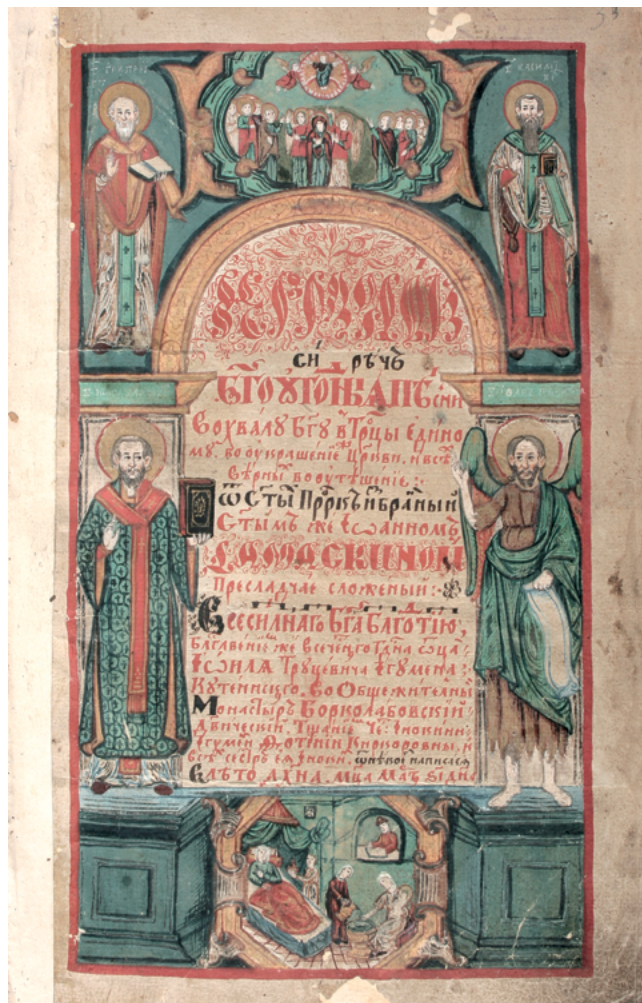 ІЕРМОЛОИ
си рѣчъ
Бг҃оугоⷣны пѣсни
Вохвалꙋ Бг҃ꙋ в Трⷪ҇цы едино
мꙋ, во оукрашенїе Цр҃кви, и всѣⷨ
вѣрныⷨ во оутѣшенїе :·
Ѿ Ст҃ыⷯ Пррⷪ҇къ избраⷩ҇ный
Ст҃ымъ же Їѡанномъ
ДАМАСКИНОМ
Пресладчае сложеный :·
Всесилнаго Бг҃а Бл҃готїю,
блг҃вениеⷨ же всечеⷭ҇нго гдⷭ҇на ѡц҃а
Їѡилѧ Трꙋцевича Їгꙋмена :
Кꙋтеинсⷦ҇го. Во Общежителныⷨ
Монастырѣ Борколабовский
Двическиⷨ. Тщаниеⷨ Чеⷭ҇: Їнокини
игꙋмеⷩ Фотинїи Киркоровны, и
всѣⷯ сестръ еѧ Їнокиⷩ. написасѧ
В лѣто ҂АХНА. Мц҃а Маѧ